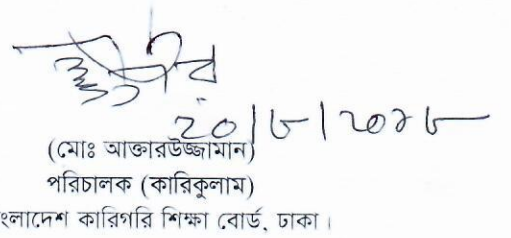 ২০/৮/২০১৮
(মোঃ আক্তারউজ্জামান)
পরিচালক (কারিকুলাম)
ংলাদেশ কারিগরি শিক্ষা বোর্ড, ঢাকা।